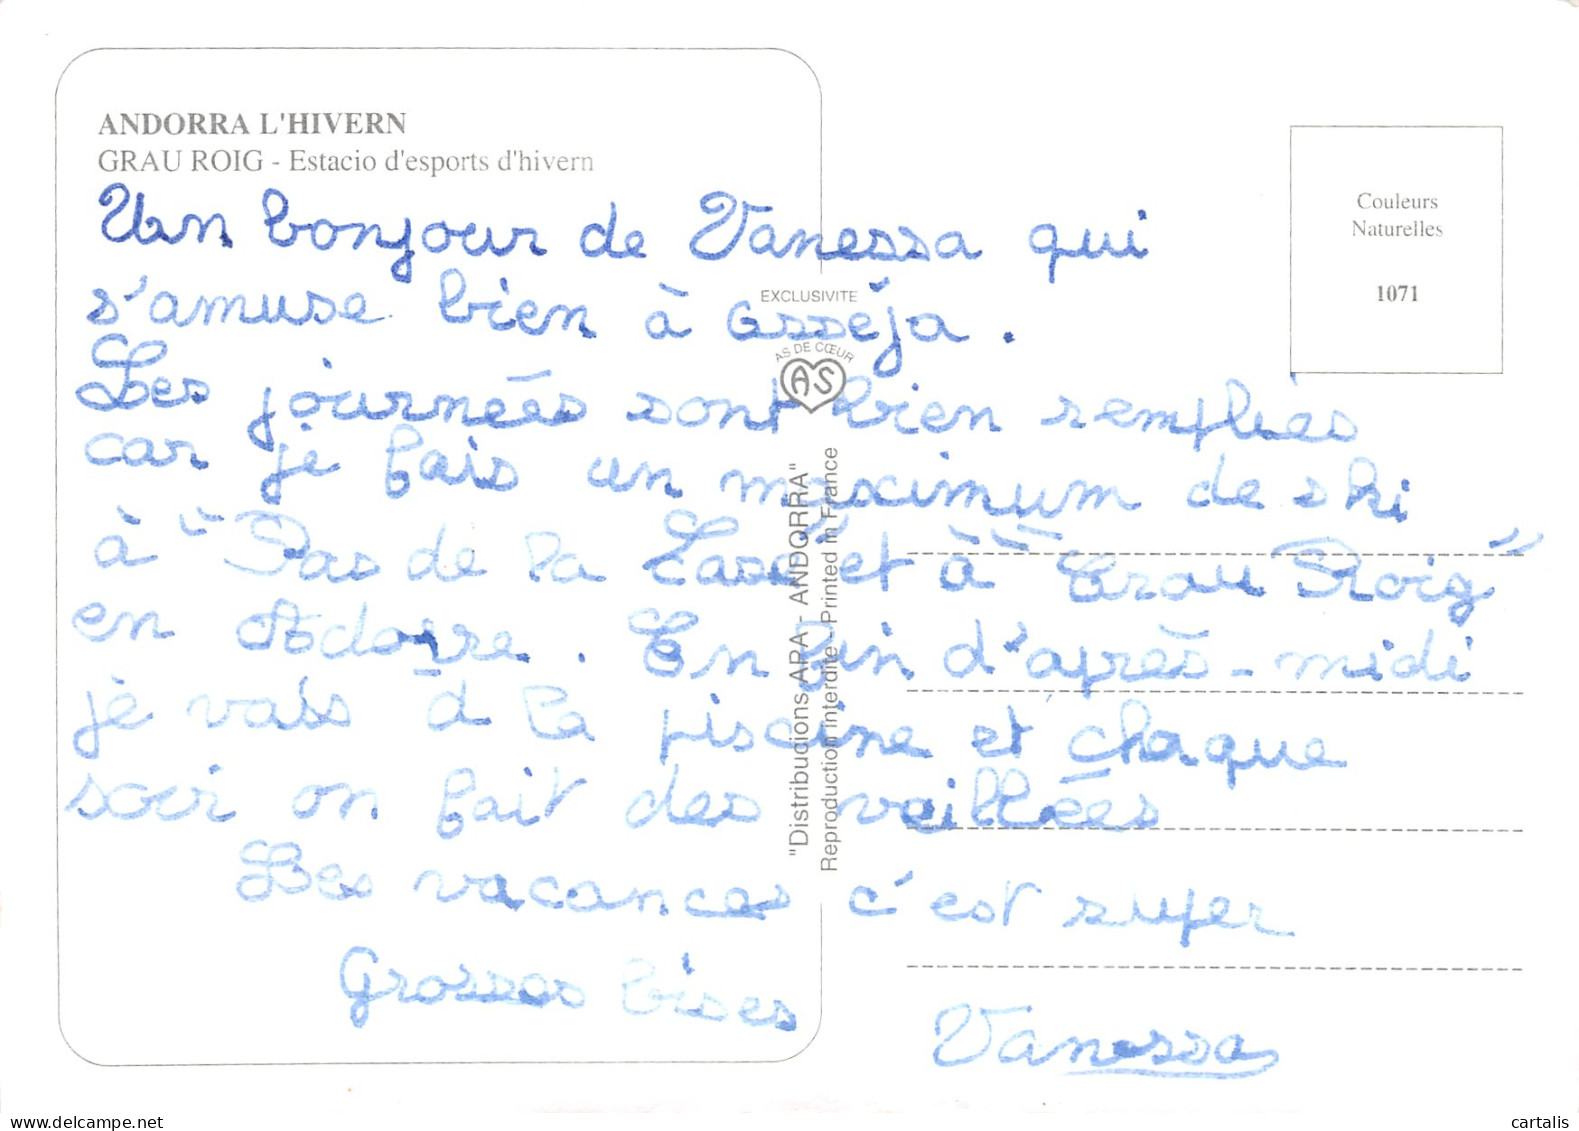 ANDORRA L'HIVERN
GRAU ROIG - Estacio d'esports d'hivern
Un bonjour de Vanessa qui
s'amuse bien à Osséja.
Les journées sont bien remplies
car je fais un maximum de ski
à "Pas de la Case" et à "Grau Roig"
en Adorre. En fin d'après-midi
je vais à la piscine et chaque
soir on fait des veillées
Les vacances c'est super
Grosses bises
Vanessa
EXCLUSIVITE
AS DE CŒUR
AS
"Distribucions APA - ANDORRA"
Reproduction interdite - Printed in France
Couleurs
Naturelles
1071
cartalis